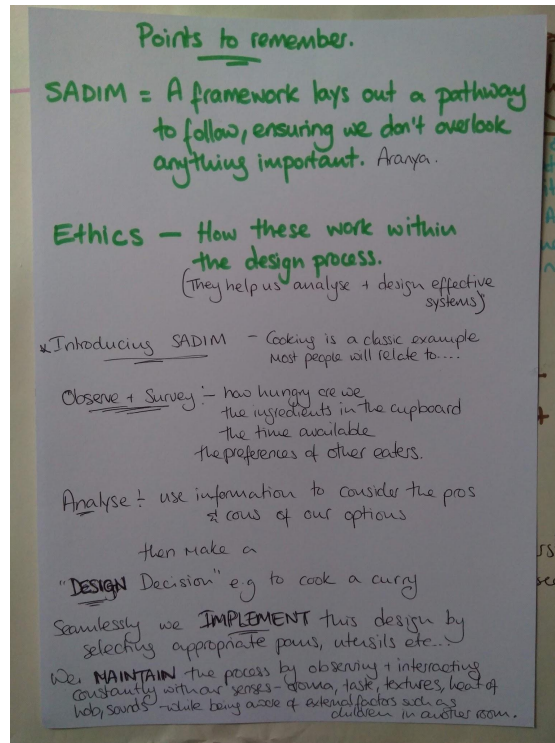 Points to remember.
SADIM = A framework lays out a pathway
to follow, ensuring we don't overlook
anything important. Aranya.
Ethics — How these work within
the design process.
(They help us analyse + design effective
systems)
*Introducing SADIM - Cooking is a classic example
most people will relate to....
Observe + Survey :- how hungry are we
the ingredients in the cupboard
the time available
the preferences of other eaters.
Analyse :- use information to consider the pros
& cons of our options
then make a
"DESIGN Decision" e.g to cook a curry
Seamlessly we IMPLEMENT this design by
selecting appropriate pans, utensils etc...
We MAINTAIN the process by observing + interacting
constantly with our senses - aroma, taste, textures, heat of
hob, sounds - while being aware of external factors such as
children in another room.